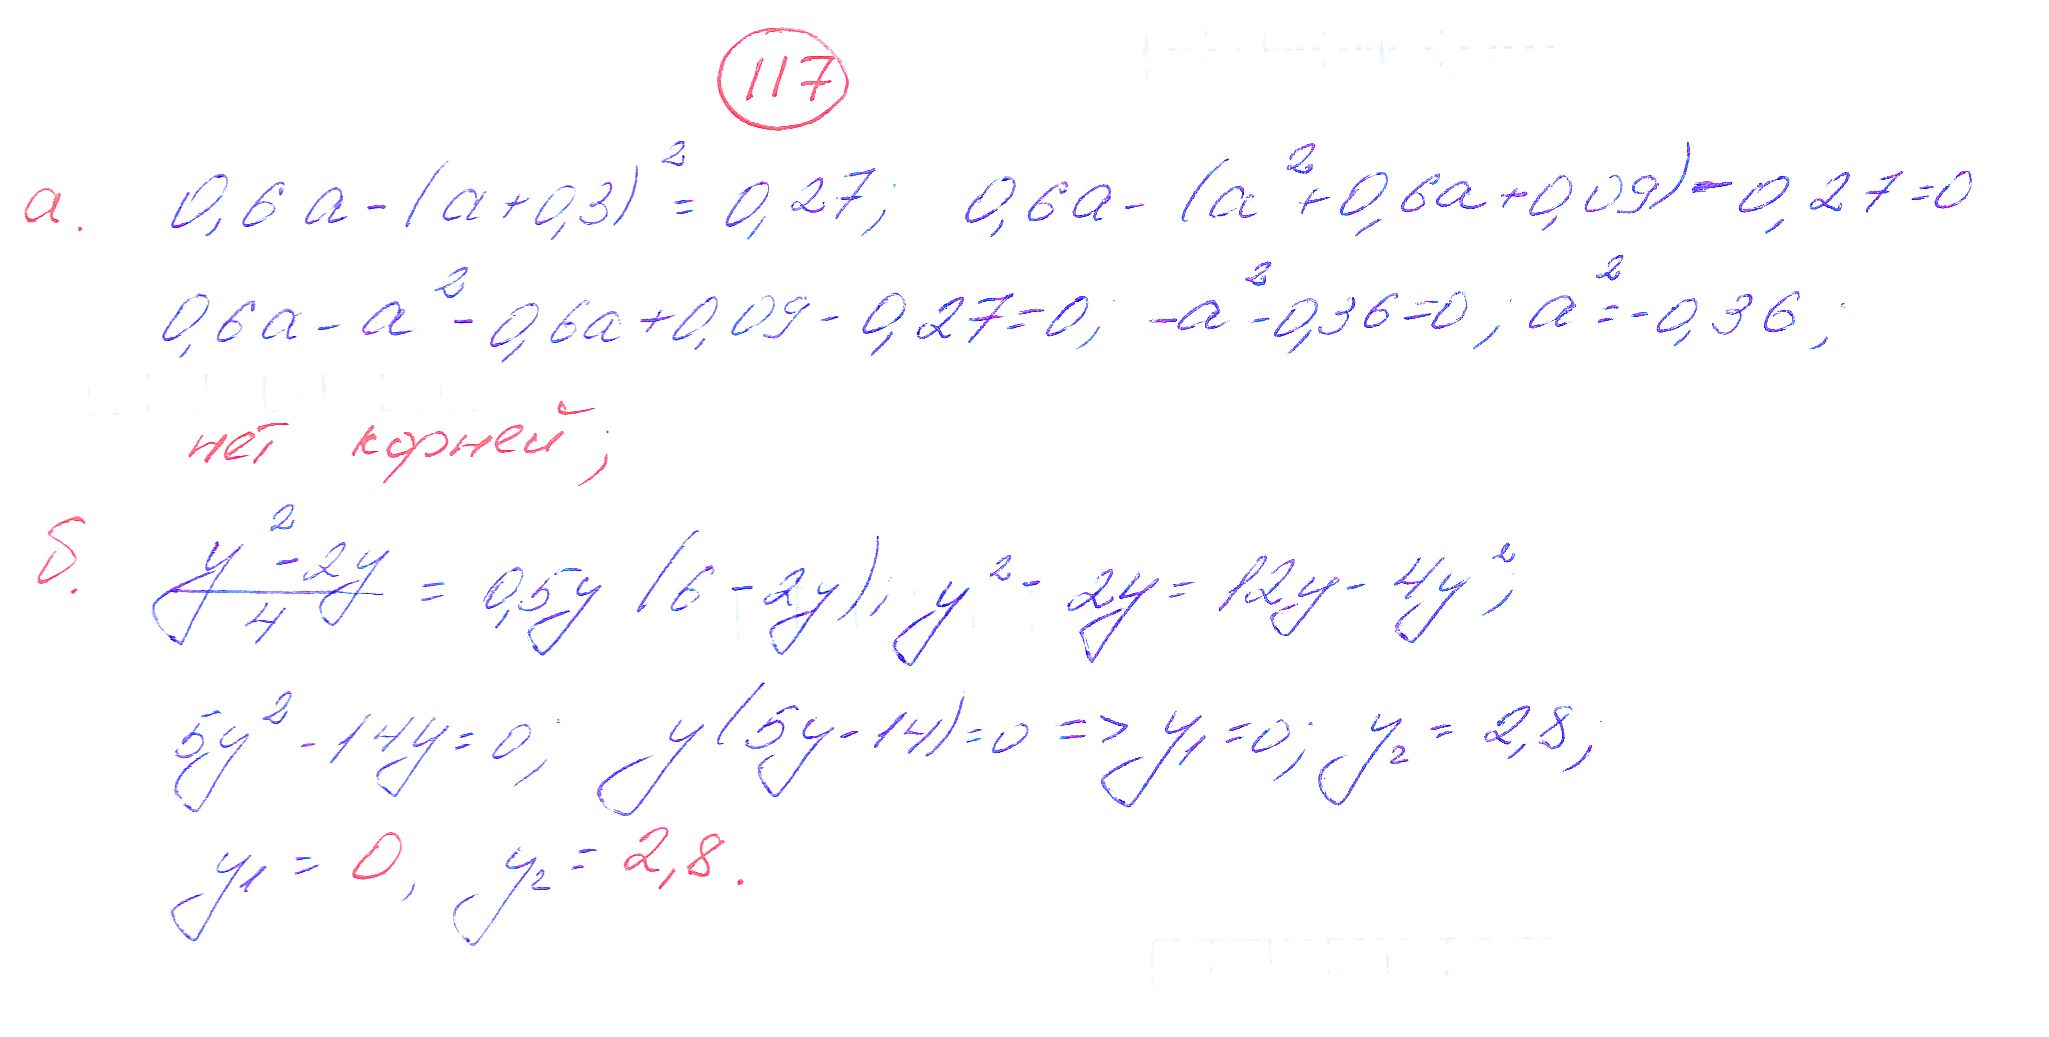 117
а. 0,6a - (a + 0,3)² = 0,27; 0,6a - (a² + 0,6a + 0,09) - 0,27 = 0
0,6a - a² - 0,6a + 0,09 - 0,27 = 0; -a² - 0,36 = 0; a² = -0,36;
нет корней;
б. (y² - 2y)/4 = 0,5y (6 - 2y); y² - 2y = 12y - 4y²;
5y² - 14y = 0; y(5y - 14) = 0 => y₁ = 0; y₂ = 2,8;
y₁ = 0, y₂ = 2,8.